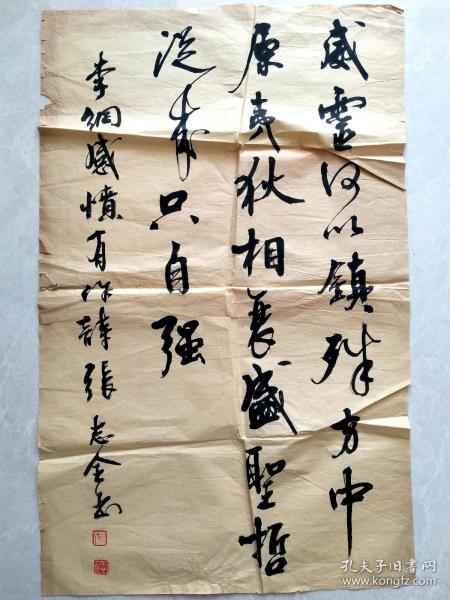 威靈何以鎮殊方中
原夷狄相衰盛聖哲
從來只自强
李綱感憤有作詩張志全書
孔夫子旧书网